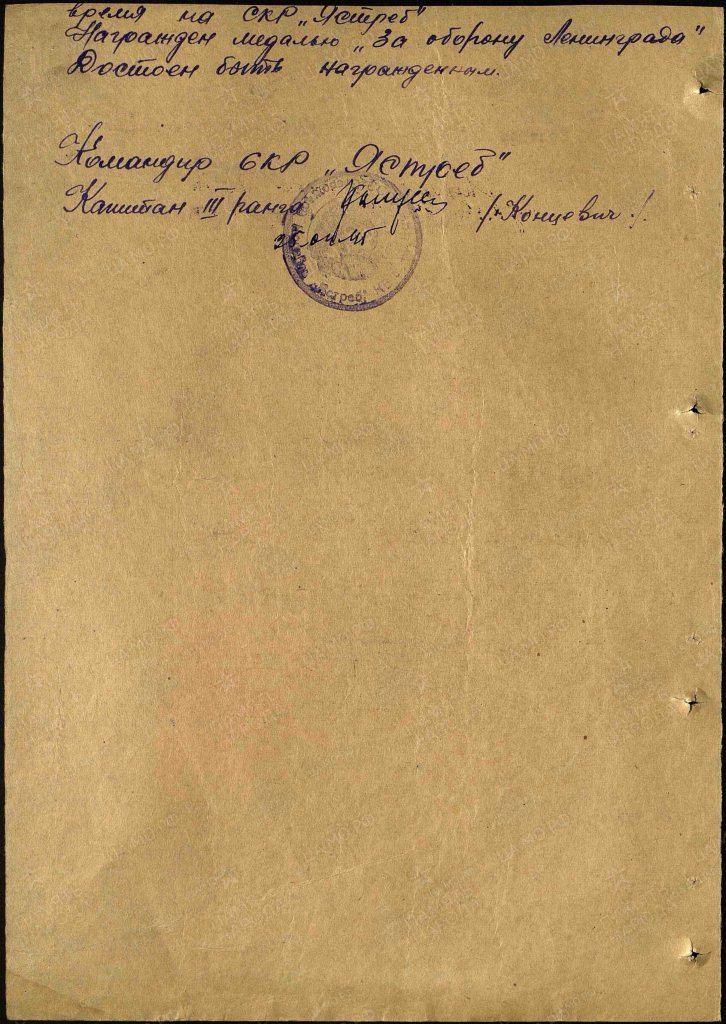 время на СКР „Ястреб"
Награжден медалью „За оборону Ленинграда"
Достоен быть награжденным.
Командир СКР „Ястреб"
Капитан III ранга /Концевич/
Ястреб